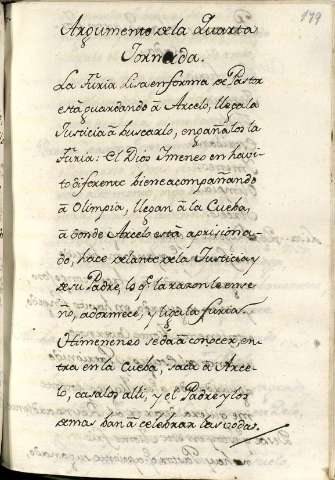 179
Argumento de la Quarta
Jornada.
La furia lisa en forma de Pastor
està guardando à Arcelo, llega la
Justicia à buscarlo, engañalos la
furia. El Dios Imeneo en havi-
to diferente biene acompañando
à Olimpia, llegan à la Cueba,
à donde Arcelo està aprisiona-
do, hace delante de la Justicia y
de su Padre, lo q.e la razon le ense-
ño, adormece, y liga la furia.
Himeneo se da à conocer, en-
tra en la Cueba, saca à Arce-
lo, casalos alli, y el Padre y los
demas ban à celebrar las vodas.